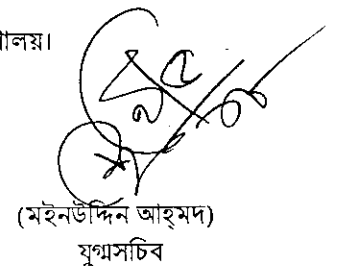 ালয়।
(মইনউদ্দিন আহ্‌মদ)
যুগ্মসচিব